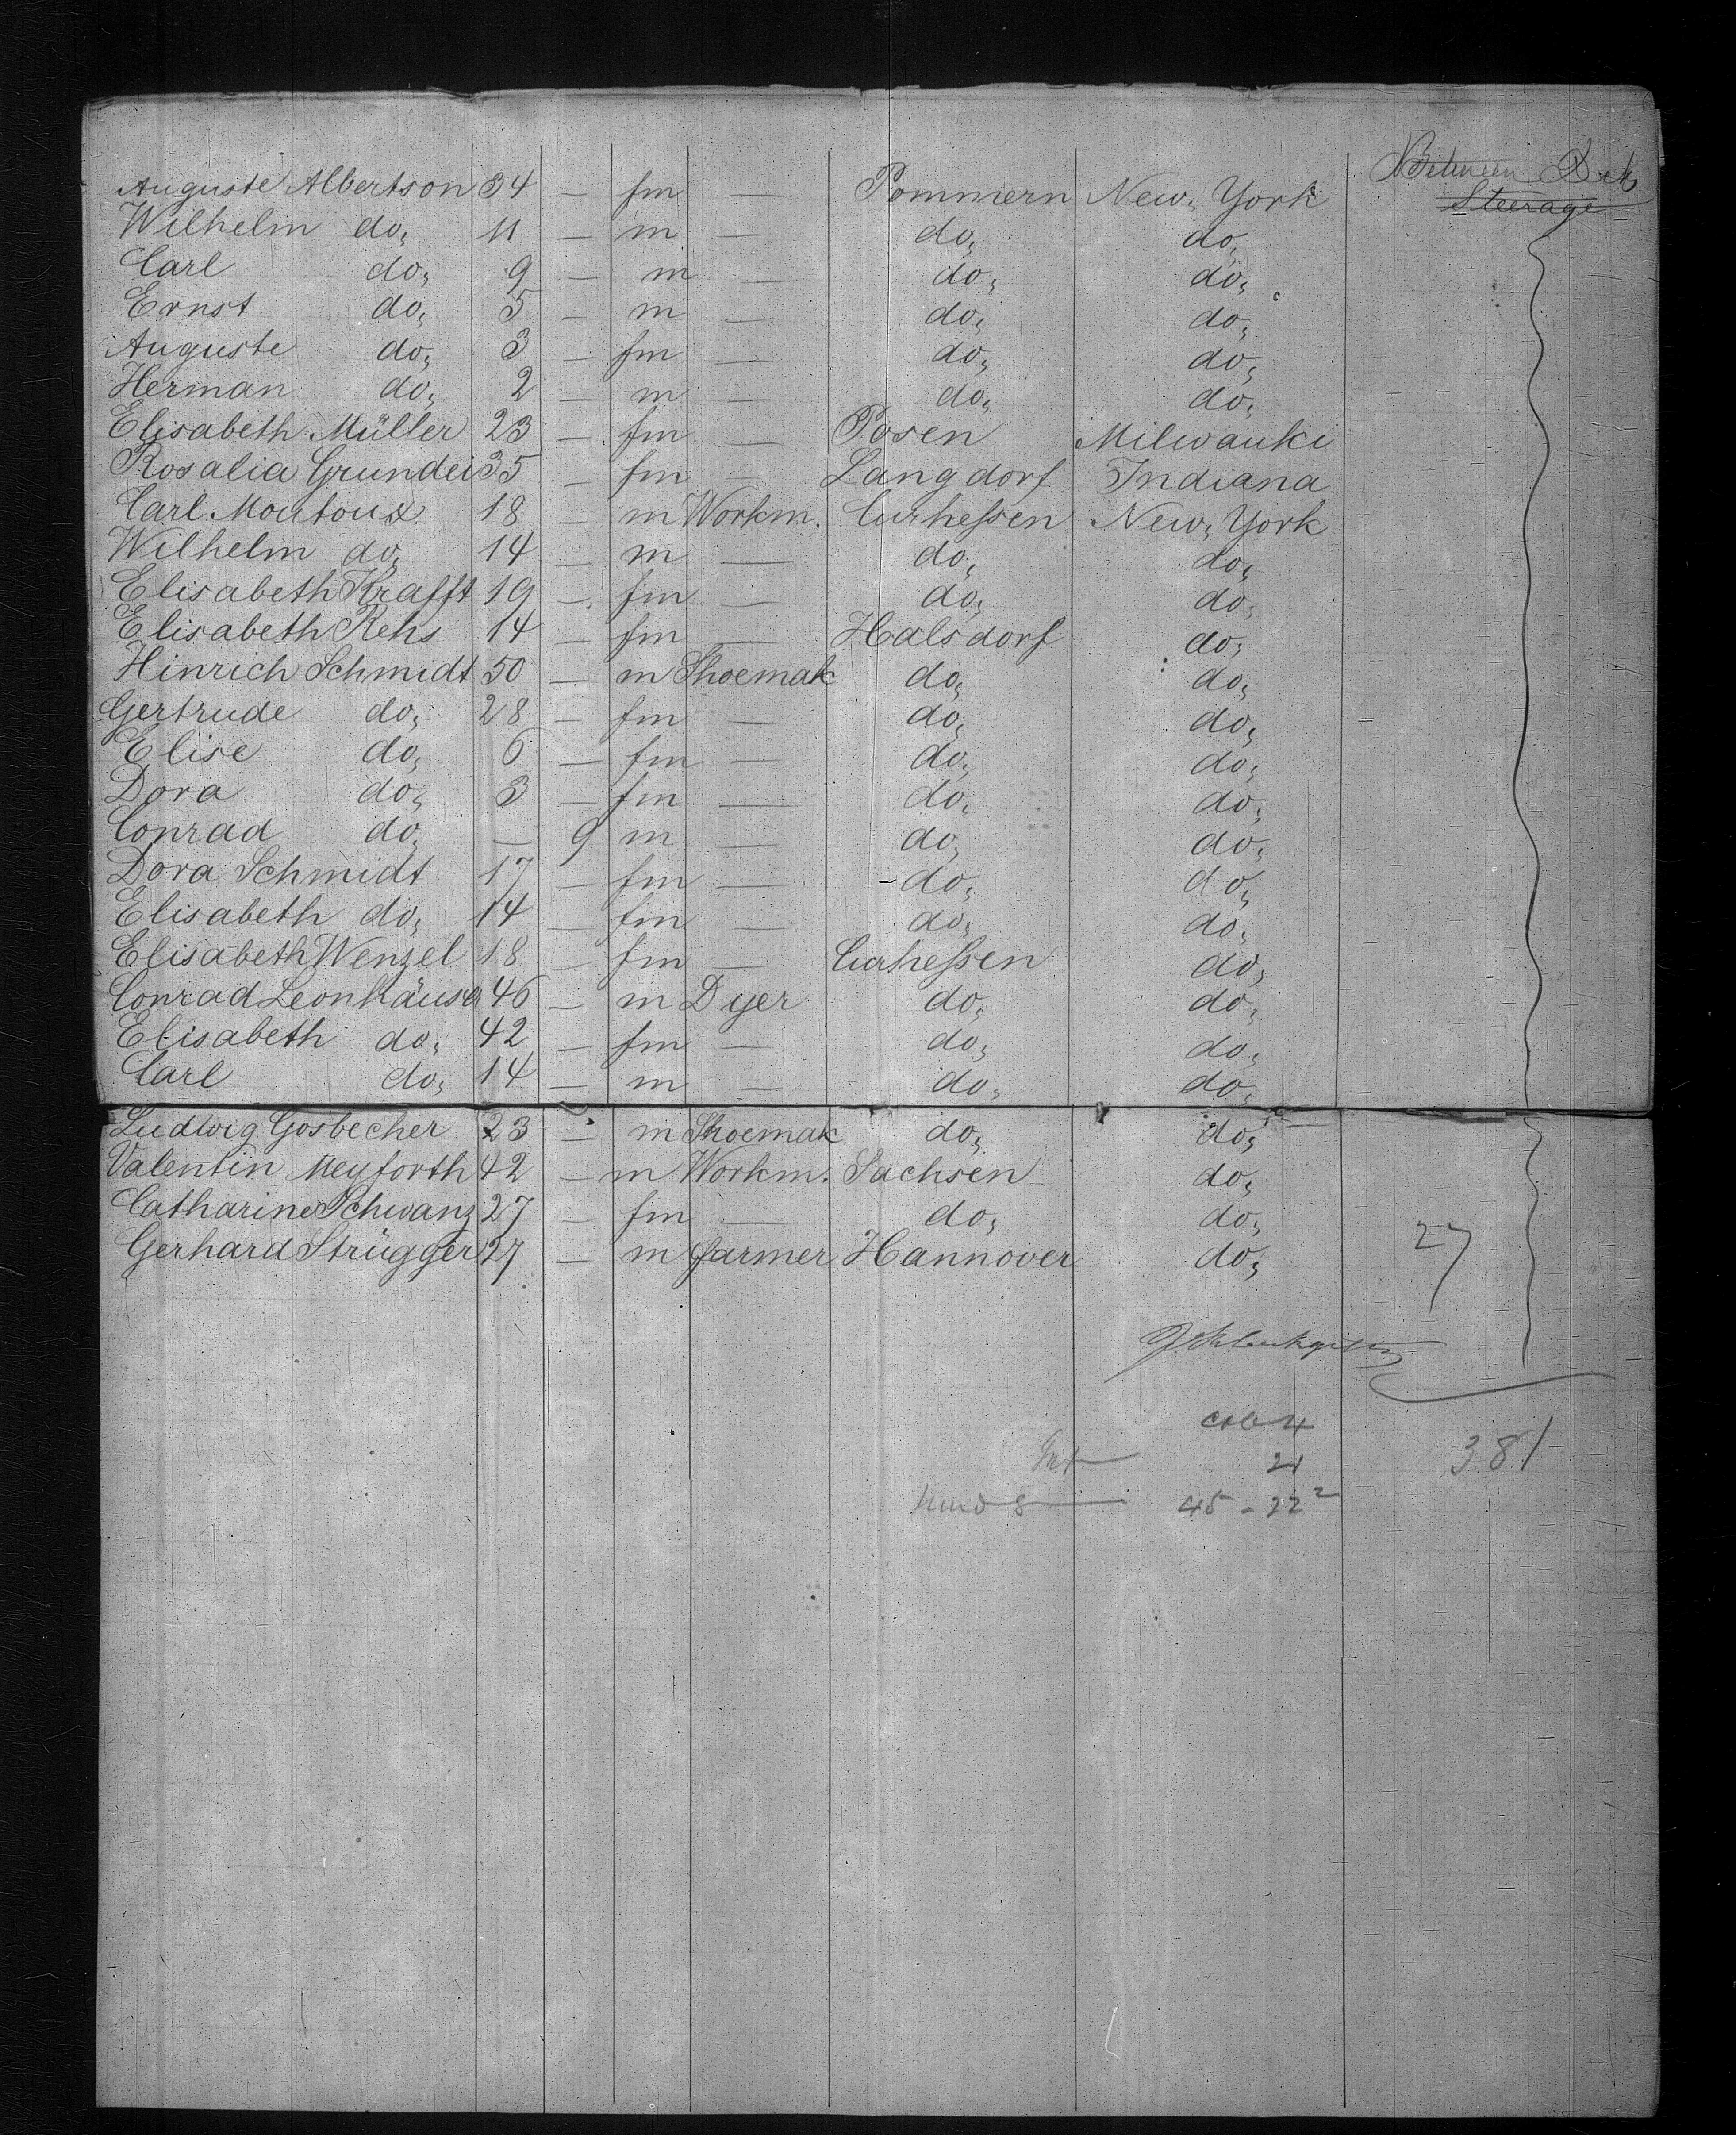 Between Deck
Steerage
Auguste Albertson 34 — fm — Pommern New York
Wilhelm do, 11 — m — do, do,
Carl do, 9 — m — do, do,
Ernst do, 5 — m — do, do,
Auguste do, 3 — fm — do, do,
Herman do, 2 — m — do, do,
Elisabeth Müller 23 — fm — Posen Milwauki
Rosalia Grundei 35 — fm — Langdorf Indiana
Carl Moutoux 18 — m Workm. Curhessen New York
Wilhelm do, 14 — m — do, do,
Elisabeth Krafft 19 — fm — do, do,
Elisabeth Rehs 14 — fm — Halsdorf do,
Hinrich Schmidt 50 — m Shoemak do, do,
Gertrude do, 28 — fm — do, do,
Elise do, 6 — fm — do, do,
Dora do, 3 — fm — do, do,
Conrad do, — 9 m — do, do,
Dora Schmidt 17 — fm — do, do,
Elisabeth do, 14 — fm — do, do,
Elisabeth Wenzel 18 — fm — Curhessen do,
Conrad Leonhäuser 46 — m Dyer do, do,
Elisabeth do, 42 — fm — do, do,
Carl do, 14 — m — do, do,
Ludwig Gosbecher 23 — m Shoemak do, do,
Valentin Meyforth 42 — m Workm. Sachsen do,
Catharine Schwanz 27 — fm — do, do,
Gerhard Strügger 27 — m farmer Hannover do,
27
4
21
381
45 - 22²